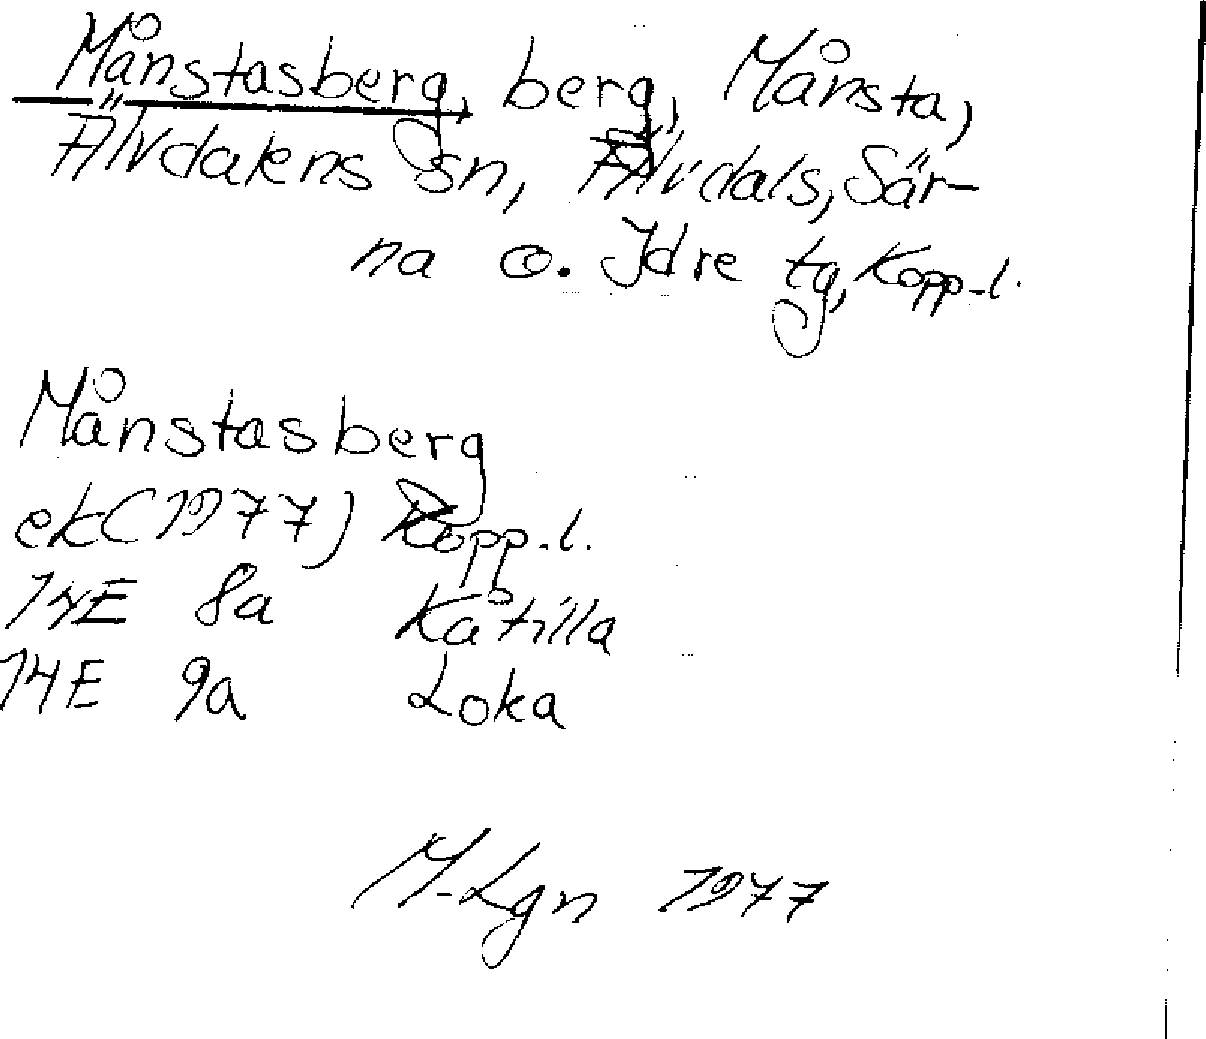 Månstasberg, berg, Månsta,
Älvdalens sn, Älvdals, Sär-
na o. Idre tg, Kopp.l.
Månstasberg
ek(1977) Kopp.l.
14E 8a Kåtilla
14E 9a Loka
M-Lgn 1977